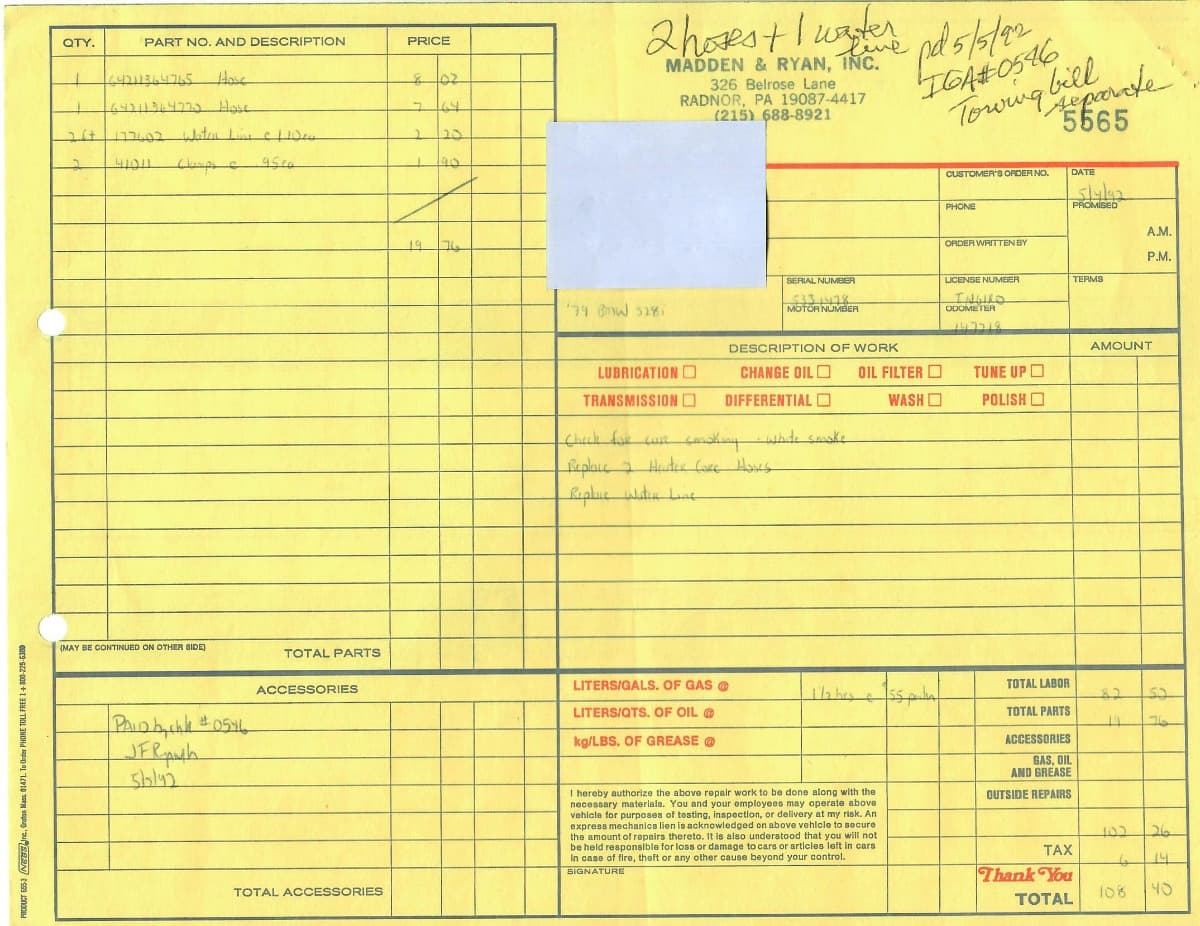 2 hoses + 1 water line
pd 5/5/92
IGA#0546
Towing bill separate
MADDEN & RYAN, INC.
326 Belrose Lane
RADNOR, PA 19087-4417
(215) 688-8921
5565
QTY. PART NO. AND DESCRIPTION PRICE
1 64211364765 Hose 8 02
1 64211364770 Hose 7 64
2ft 177602 Water Line @ 1.10ea 2 20
2 41011 Clamps @ .95ea 1 90
19 76
(MAY BE CONTINUED ON OTHER SIDE) TOTAL PARTS
ACCESSORIES
PAID by chk #0546
5/5/92
TOTAL ACCESSORIES
CUSTOMER'S ORDER NO. DATE
5/4/92
PHONE PROMISED
A.M.
ORDER WRITTEN BY
P.M.
SERIAL NUMBER LICENSE NUMBER TERMS
5331478
'79 BMW 528i MOTOR NUMBER ODOMETER
147718
DESCRIPTION OF WORK AMOUNT
LUBRICATION CHANGE OIL OIL FILTER TUNE UP
TRANSMISSION DIFFERENTIAL WASH POLISH
Check for core smoking - white smoke
Replace 2 Heater Core Hoses
Replace Water Line
LITERS/GALS. OF GAS @ 1 1/2 hrs @ $55 per hr TOTAL LABOR 82 50
LITERS/QTS. OF OIL @ TOTAL PARTS 19 76
kg/LBS. OF GREASE @ ACCESSORIES
GAS, OIL
AND GREASE
OUTSIDE REPAIRS
102 26
TAX 6 14
Thank You
TOTAL 108 40
I hereby authorize the above repair work to be done along with the
necessary materials. You and your employees may operate above
vehicle for purposes of testing, inspection, or delivery at my risk. An
express mechanics lien is acknowledged on above vehicle to secure
the amount of repairs thereto. It is also understood that you will not
be held responsible for loss or damage to cars or articles left in cars
in case of fire, theft or any other cause beyond your control.
SIGNATURE
PRODUCT 655-3 NEBS Inc., Groton, Mass. 01471. To Order PHONE TOLL FREE 1 + 800-225-6380